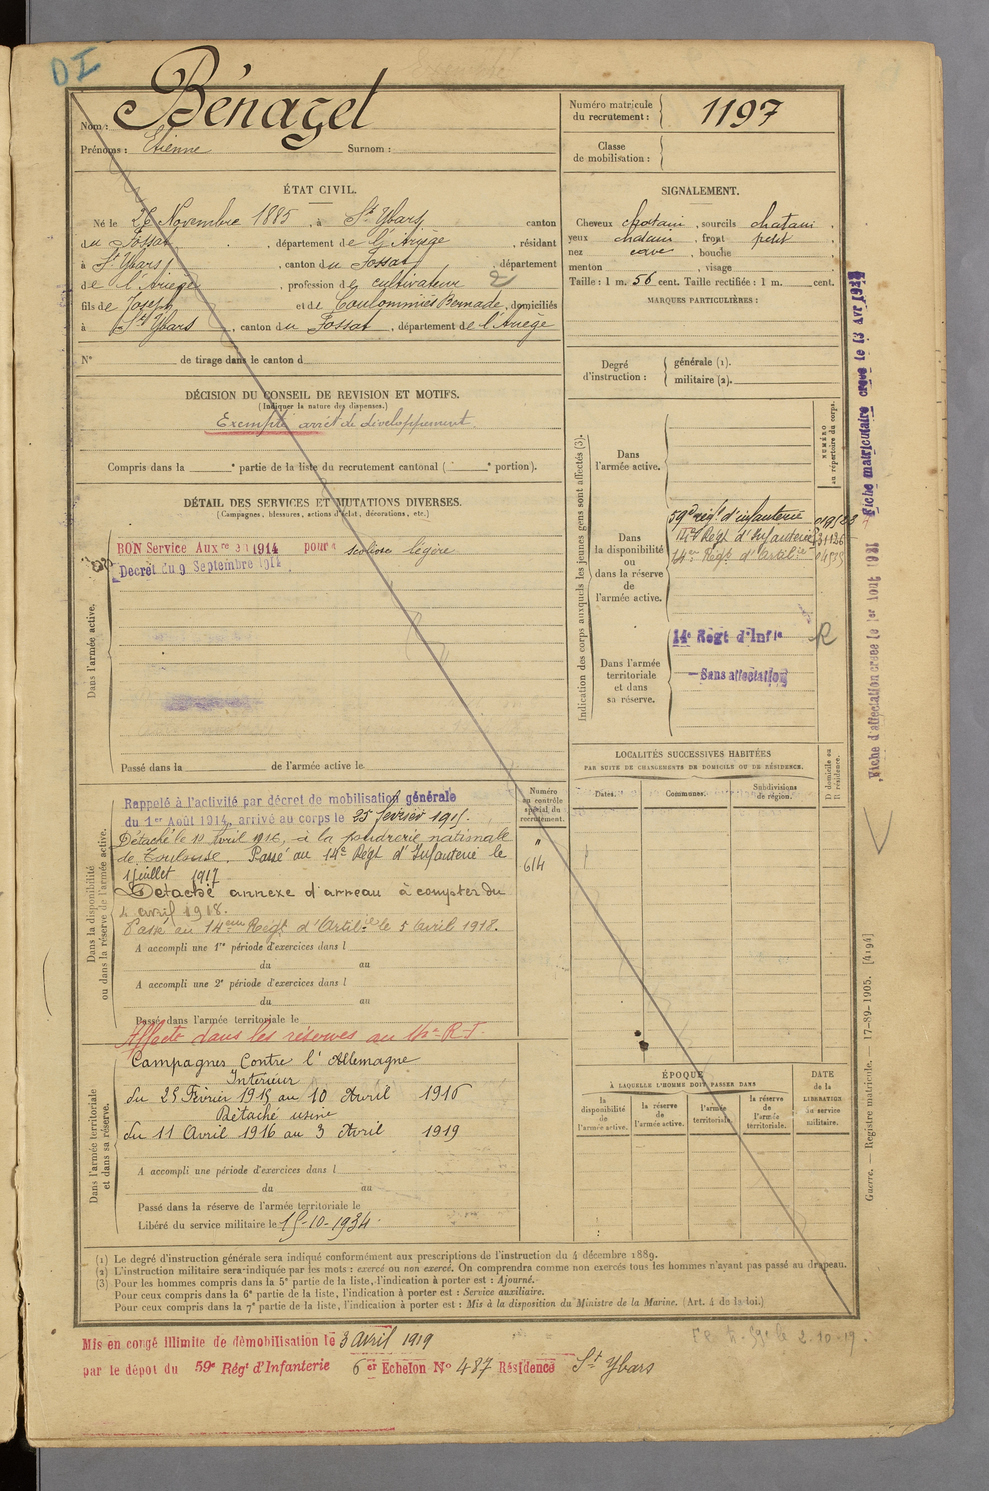 DI
Nom : Bénazet
Prénoms : Etienne Surnom :
Numéro matricule du recrutement : 1197
Classe de mobilisation :
ÉTAT CIVIL.
Né le 26 Novembre 1885, à St Ybars, canton
du Fossat, département de l'Ariège, résidant
à St Ybars, canton du Fossat, département
de l'Ariège, profession de cultivateur 2
fils de Joseph et de Coulommiès Bernade, domiciliés
à St Ybars, canton du Fossat, département de l'Ariège
N° de tirage dans le canton d
SIGNALEMENT.
Cheveux chatain, sourcils chatain,
yeux chatain, front petit,
nez cave, bouche
menton , visage
Taille : 1 m. 56 cent. Taille rectifiée : 1 m. cent.
MARQUES PARTICULIÈRES :
Degré d'instruction : générale (1).
militaire (2).
DÉCISION DU CONSEIL DE REVISION ET MOTIFS.
(Indiquer la nature des dispenses.)
Exempté arrêt de développement.
Compris dans la e partie de la liste du recrutement cantonal ( e portion).
DÉTAIL DES SERVICES ET MUTATIONS DIVERSES.
(Campagnes, blessures, actions d'éclat, décorations, etc.)
Dans l'armée active.
BON Service Auxre 1914 pour scoliose légère
Décret du 9 Septembre 1914
Passé dans la de l'armée active le
Indication des corps auxquels les jeunes gens sont affectés (3).
NUMÉRO au répertoire du corps.
Dans l'armée active.
Dans la disponibilité ou dans la réserve de l'armée active.
59e régt. d'infanterie
14e Régt d'Infanterie
14e Régt d'Artilie
Dans l'armée territoriale et dans sa réserve.
14e Régt d'Infie R
Sans affectation
LOCALITÉS SUCCESSIVES HABITÉES
PAR SUITE DE CHANGEMENTS DE DOMICILE OU DE RÉSIDENCE.
Dates. Communes. Subdivisions de région. D domicile ou R résidence.
Dans la disponibilité ou dans la réserve de l'armée active.
Numéro au contrôle spécial du recrutement.
Rappelé à l'activité par décret de mobilisation générale
du 1er Août 1914, arrivé au corps le 25 février 1915.
Détaché le 11 Avril 1916, à la poudrerie nationale
de Toulouse. Passé au 14e Régt d'Infanterie le
1 juillet 1917
614
Détaché annexe d'arreau à compter du
4 avril 1918.
Passé au 14ème Régt d'Artilie le 5 Avril 1918.
A accompli une 1re période d'exercices dans l
du au
A accompli une 2e période d'exercices dans l
du au
Passé dans l'armée territoriale le
Affecté dans les réserves au 14e R.I.
Dans l'armée territoriale et dans sa réserve.
Campagnes Contre l'Allemagne
Intérieur
du 25 Février 1915 au 10 Avril 1916
Détaché usine
du 11 Avril 1916 au 3 Avril 1919
A accompli une période d'exercices dans l
du au
Passé dans la réserve de l'armée territoriale le
Libéré du service militaire le 15-10-1934
ÉPOQUE
À LAQUELLE L'HOMME DOIT PASSER DANS
la disponibilité de l'armée active.
la réserve de l'armée active.
l'armée territoriale.
la réserve de l'armée territoriale.
DATE de la LIBÉRATION du service militaire.
(1) Le degré d'instruction générale sera indiqué conformément aux prescriptions de l'instruction du 4 décembre 1889.
(2) L'instruction militaire sera indiquée par les mots : exercé ou non exercé. On comprendra comme non exercés tous les hommes n'ayant pas passé au drapeau.
(3) Pour les hommes compris dans la 5e partie de la liste, l'indication à porter est : Ajourné.
Pour ceux compris dans la 6e partie de la liste, l'indication à porter est : Service auxiliaire.
Pour ceux compris dans la 7e partie de la liste, l'indication à porter est : Mis à la disposition du Ministre de la Marine. (Art. 4 de la loi.)
Mis en congé illimité de démobilisation le 3 avril 1919
par le dépôt du 59e Régt d'Infanterie 6er Echelon No 487 Résidence St Ybars
le 2-10-19.
Fiche matriculaire créée le 13 Avr
Fiche d'affectation créée le 1er Août 1931
Guerre. — Registre matricule. — 17-89-1905. [4194]